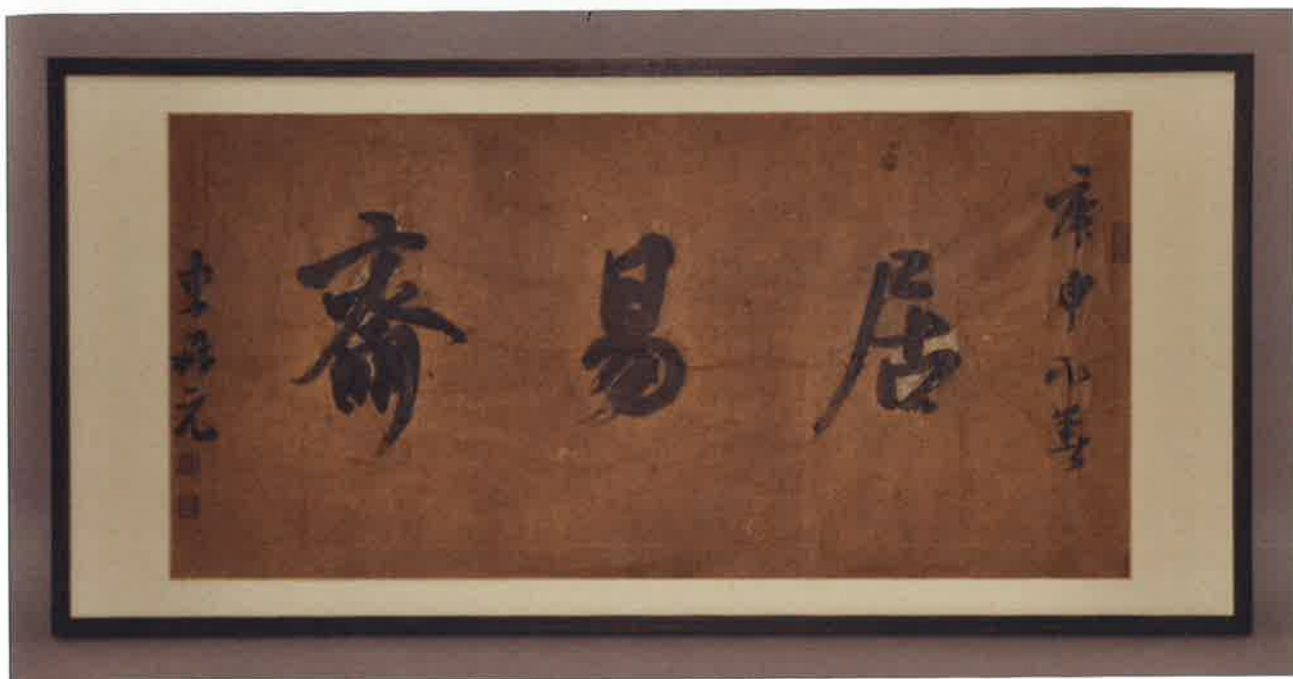 庚申小春
居易齋
李元